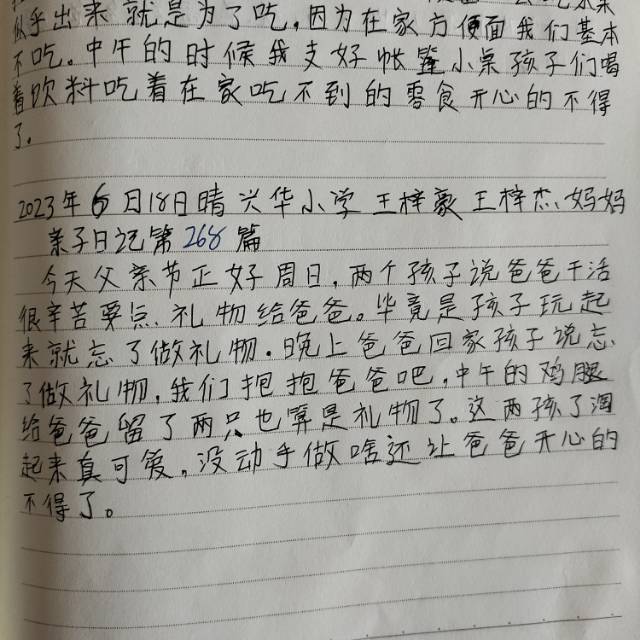 似乎出来就是为了吃，因为在家方便面我们基本
不吃。中午的时候我支好帐篷小桌孩子们喝
着饮料吃着在家吃不到的零食开心的不得
了。
2023年6月18日晴 兴华小学 王梓豪 王梓杰妈妈
亲子日记第268篇
今天父亲节正好周日，两个孩子说爸爸干活
很辛苦要点礼物给爸爸。毕竟是孩子玩起
来就忘了做礼物。晚上爸爸回家孩子说忘
了做礼物，我们抱抱爸爸吧，中午的鸡腿
给爸爸留了两只也算是礼物了。这两孩子淘
起来真可爱，没动手做啥还让爸爸开心的
不得了。